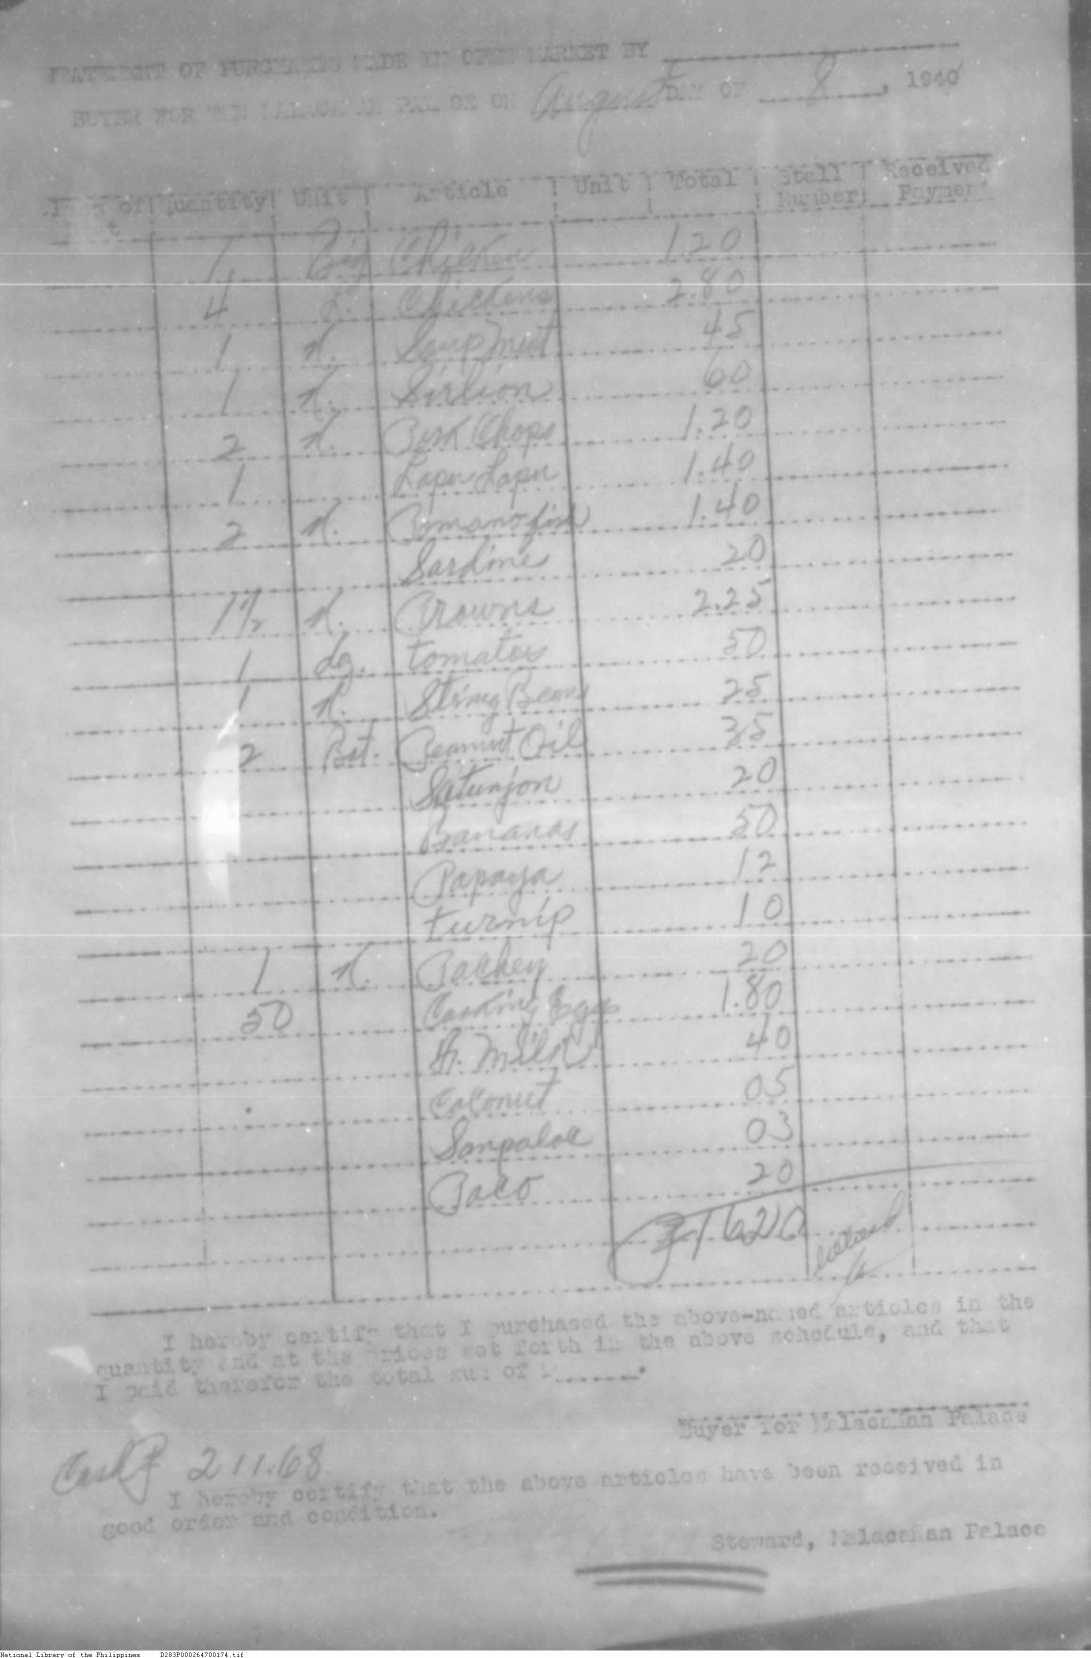 STATEMENT OF PURCHASES MADE IN OPEN MARKET BY
BUYER FOR THE MALACAÑAN PALACE ON August DAY OF 8, 1940
of Quantity Unit Article Unit Total Stall Number Received Payment
1 Big Chicken 1.20
4 Chickens 2.80
1 K. Soup Meat 45
1 K. Sirlion 60
2 K. Pork Chops 1.20
1 Lapu Lapu 1.40
2 K. fish 1.40
Sardine 20
1 1/2 K. Prawns 2.25
1 dz. tomatoes 50
1 K. String Beans 25
2 Bot. Peanut Oil 35
20
Bananas 50
Papaya 12
turnip 10
1 K. Pachey 20
50 Cooking Eggs 1.80
Fr. Milk 40
Coconut 05
Sanpaloc 03
Paco 20
₱ 1620
I hereby certify that I purchased the above-named articles in the
quantity and at the prices set forth in the above schedule, and that
I paid therefor the total sum of ₱
Buyer for Malacañan Palace
Cash ₱ 211.68
I hereby certify that the above articles have been received in
good order and condition.
Steward, Malacañan Palace
National Library of the Philippines D283P000264700174.tif